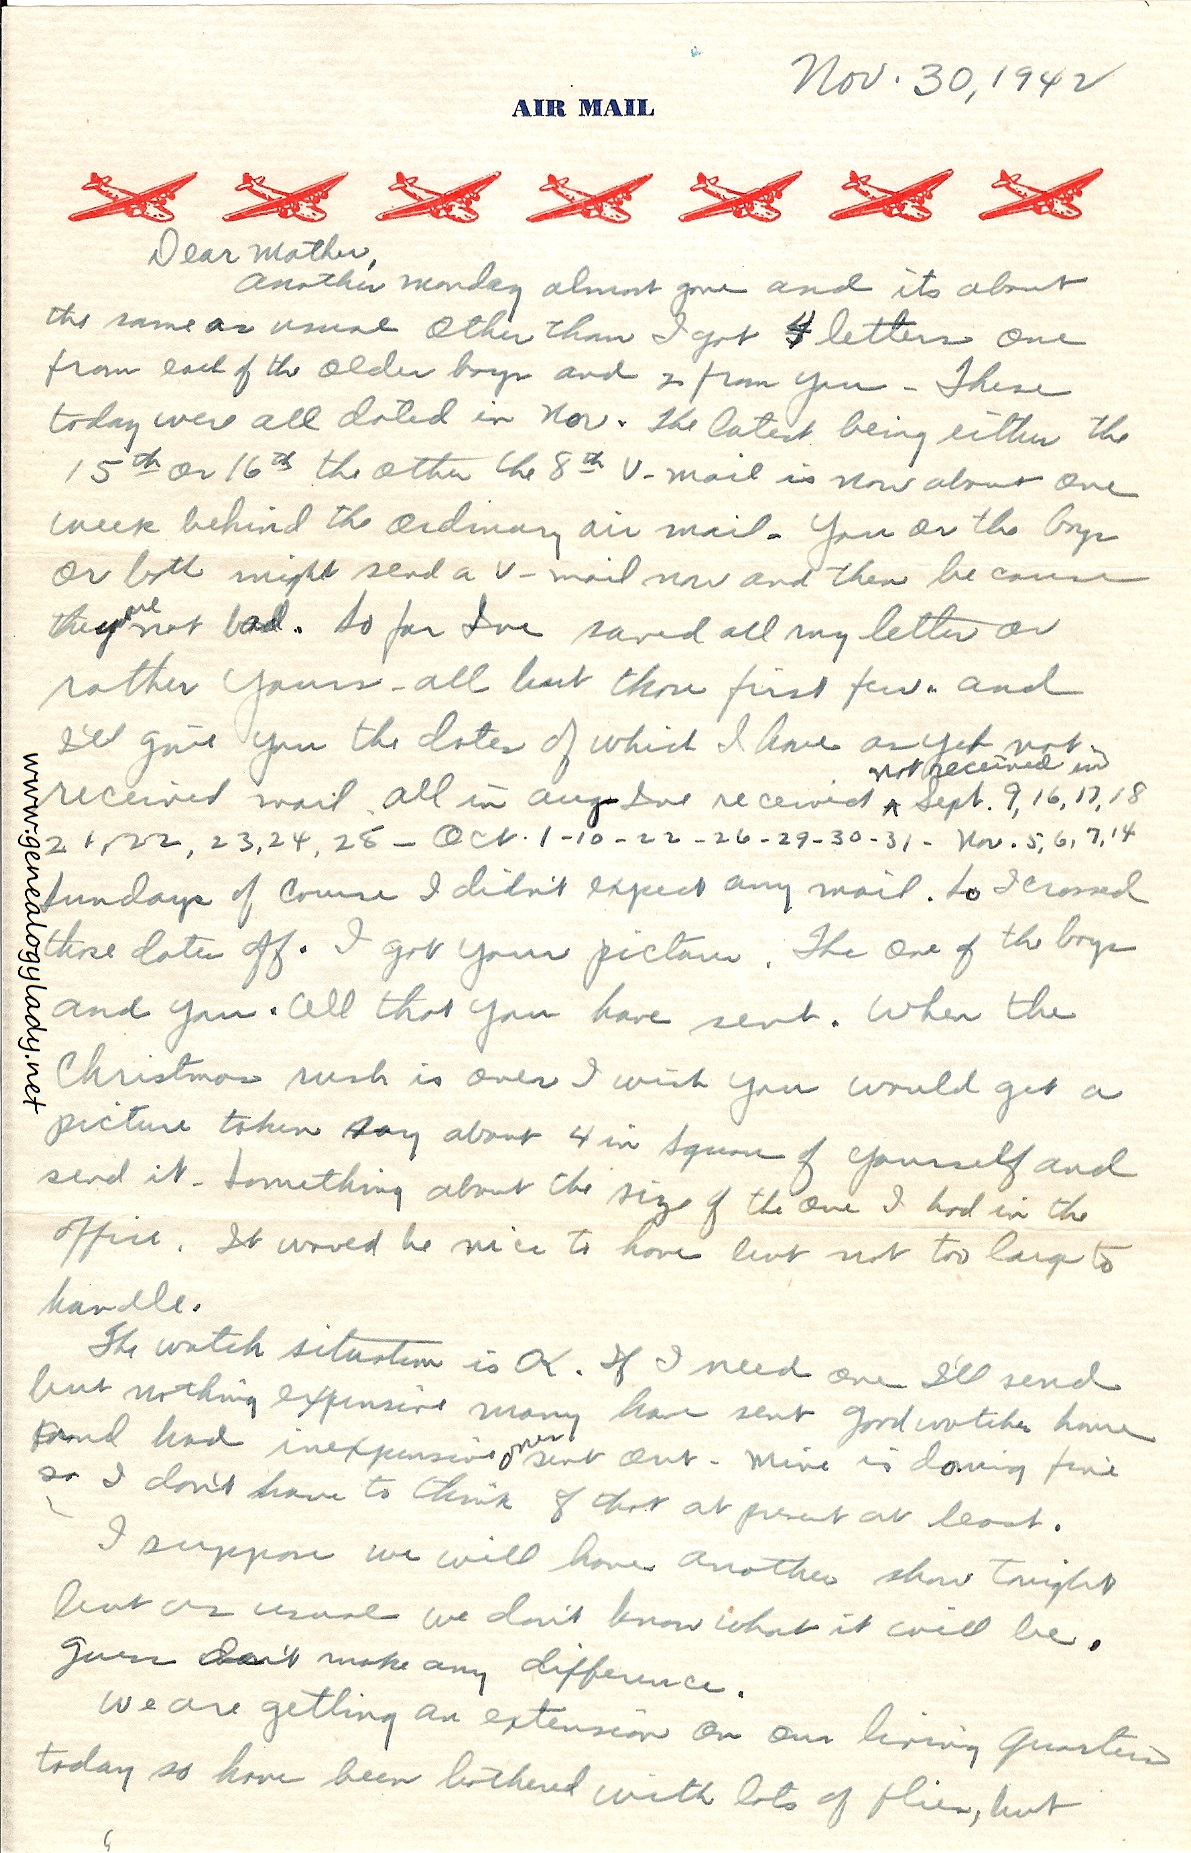 Nov. 30, 1942
AIR MAIL
Dear Mother,
Another Monday almost gone and its about
the same as usual other than I got 4 letters one
from each of the older boys and 2 from you - These
today were all dated in Nov. The latest being either the
15th or 16th the other the 8th V-mail is now about one
week behind the ordinary air mail. You or the boys
or both might send a V-mail now and then because
they are not bad. So far I've saved all my letter or
rather yours - all but those first few. and
I'll give you the dates of which I have as yet not
received mail all in Aug I've received ^ not received in Sept. 9, 16, 17, 18
21, 22, 23, 24, 28 - Oct. 1-10-22-26-29-30-31- Nov. 5, 6, 7, 14
Sundays of course I didn't expect any mail. So I crossed
those dates off. I got your picture. The one of the boys
and you. All that you have sent. When the
Christmas rush is over I wish you would get a
picture taken say about 4 in square of yourself and
send it. Something about the size of the one I had in the
office. It would be nice to have but not too large to
handle.
The watch situation is OK. If I need one I'll send
but nothing expensive many have sent good watches home
and had inexpensive ones sent out - mine is doing fine
so I don't have to think of that at present at least.
I suppose we will have another show tonight
but as usual we don't know what it will be.
Guess don't make any difference.
We are getting an extension on our living quarters
today so have been bothered with lots of flies, but
www.genealogylady.net